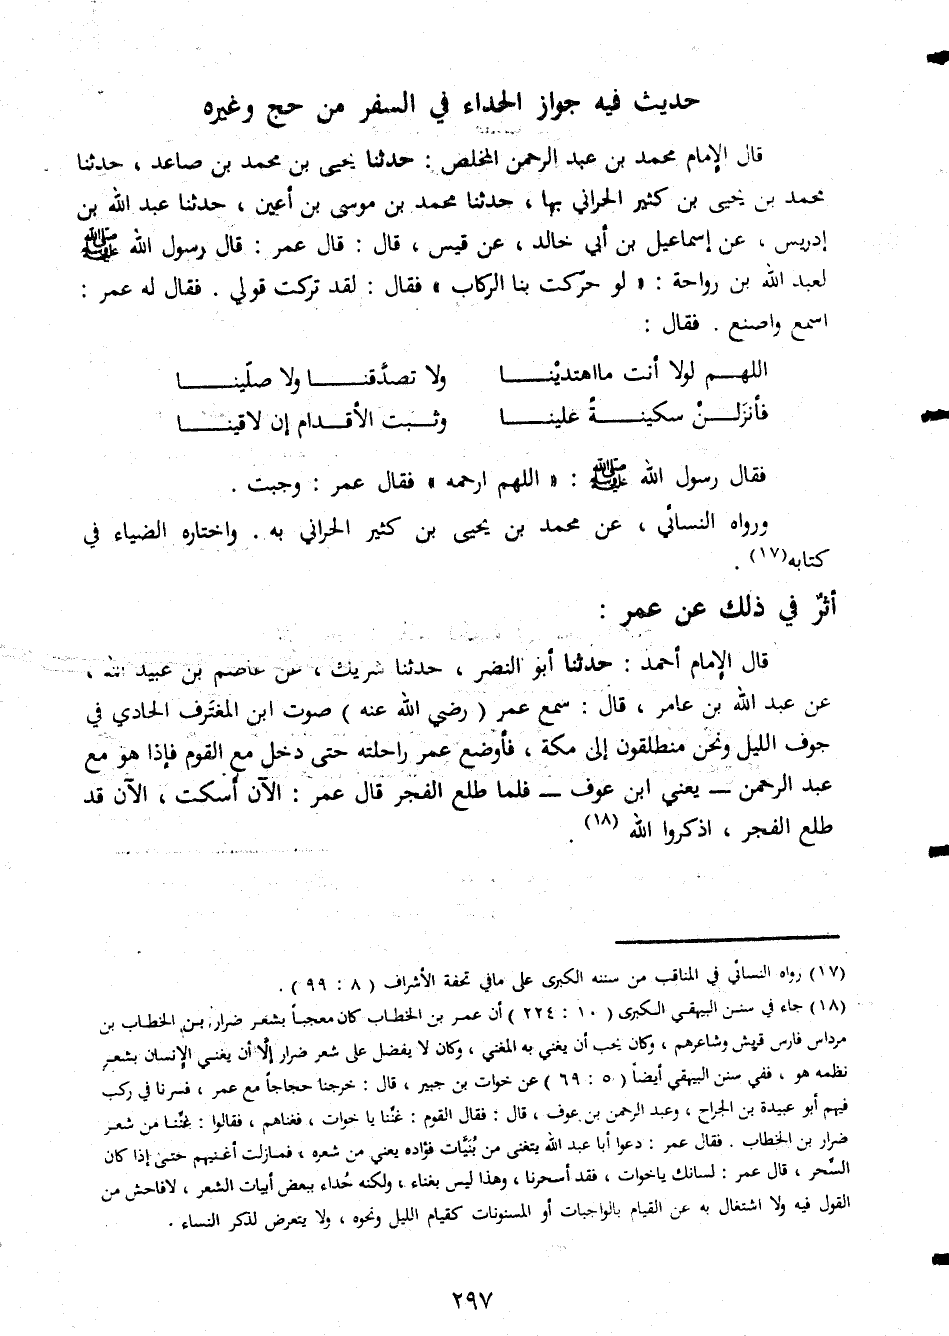 حديث فيه جواز الحداء في السفر من حج وغيره
قال الإمام محمد بن عبد الرحمن المخلص : حدثنا يحيى بن محمد بن صاعد ، حدثنا
محمد بن يحيى بن كثير الحراني بها ، حدثنا محمد بن موسى بن أعين ، حدثنا عبد الله بن
إدريس ، عن إسماعيل بن أبي خالد ، عن قيس ، قال : قال عمر : قال رسول الله ﷺ
لعبد الله بن رواحة : « لو حرّكت بنا الركاب » فقال : لقد تركت قولي . فقال له عمر :
اسمع واصنع . فقال :
اللهـــم لولا أنت مااهتديْنـــــا ولا تصدَّقنـــــا ولا صلّينـــــا
فأنزَلـــنْ سكينـــــةً علينـــــا وثـــبت الأقـــدام إن لاقينـــــا
فقال رسول الله ﷺ : « اللهم ارحمه » فقال عمر : وجبت .
ورواه النسائي ، عن محمد بن يحيى بن كثير الحراني به . واختاره الضياء في
كتابه(١٧) .
أثرٌ في ذلك عن عمر :
قال الإمام أحمد : حدثنا أبو النضر ، حدثنا شريك ، عن عاصم بن عبيد الله ،
عن عبد الله بن عامر ، قال : سمع عمر ( رضي الله عنه ) صوت ابن المغتَرف الحادي في
جوف الليل ونحن منطلقون إلى مكة ، فأوضع عمر راحلته حتى دخل مع القوم فإذا هو مع
عبد الرحمن ـــ يعني ابن عوف ـــ فلما طلع الفجر قال عمر : الآن أسكت ، الآن قد
طلع الفجر ، اذكروا الله (١٨) .
(١٧) رواه النسائي في المناقب من سننه الكبرى على مافي تحفة الأشراف ( ٨ : ٩٩ ) .
(١٨) جاء في سنن البيهقي الكبرى ( ١٠ : ٢٢٤ ) أن عمر بن الخطاب كان معجباً بشعر ضرار بن الخطاب بن
مرداس فارس قريش وشاعرهم ، وكان يحب أن يغني به المغني ، وكان لا يفضل على شعر ضرار إلّا أن يغني الإنسان بشعرٍ
نظمه هو ، ففي سنن البيهقي أيضاً ( ٥ : ٦٩ ) عن خوات بن جبير ، قال : خرجنا حجاجاً مع عمر ، فسرنا في ركب
فيهم أبو عبيدة بن الجراح ، وعبد الرحمن بن عوف ، قال : فقال القوم : غنّنا يا خوات ، فغناهم ، فقالوا : غنّنا من شعر
ضرار بن الخطاب . فقال عمر : دعوا أبا عبد الله يتغنى من بُنَيَّات فؤاده يعني من شعره ، فمازلت أغنيهم حتى إذا كان
السَّحر ، قال عمر : لسانك ياخوات ، فقد أسحرنا ، وهذا ليس بغناء ، ولكنه حُداء ببعض أبيات الشعر ، لافاحش من
القول فيه ولا اشتغال به عن القيام بالواجبات أو المسنونات كقيام الليل ونحوه ، ولا يتعرض لذكر النساء .
٢٩٧